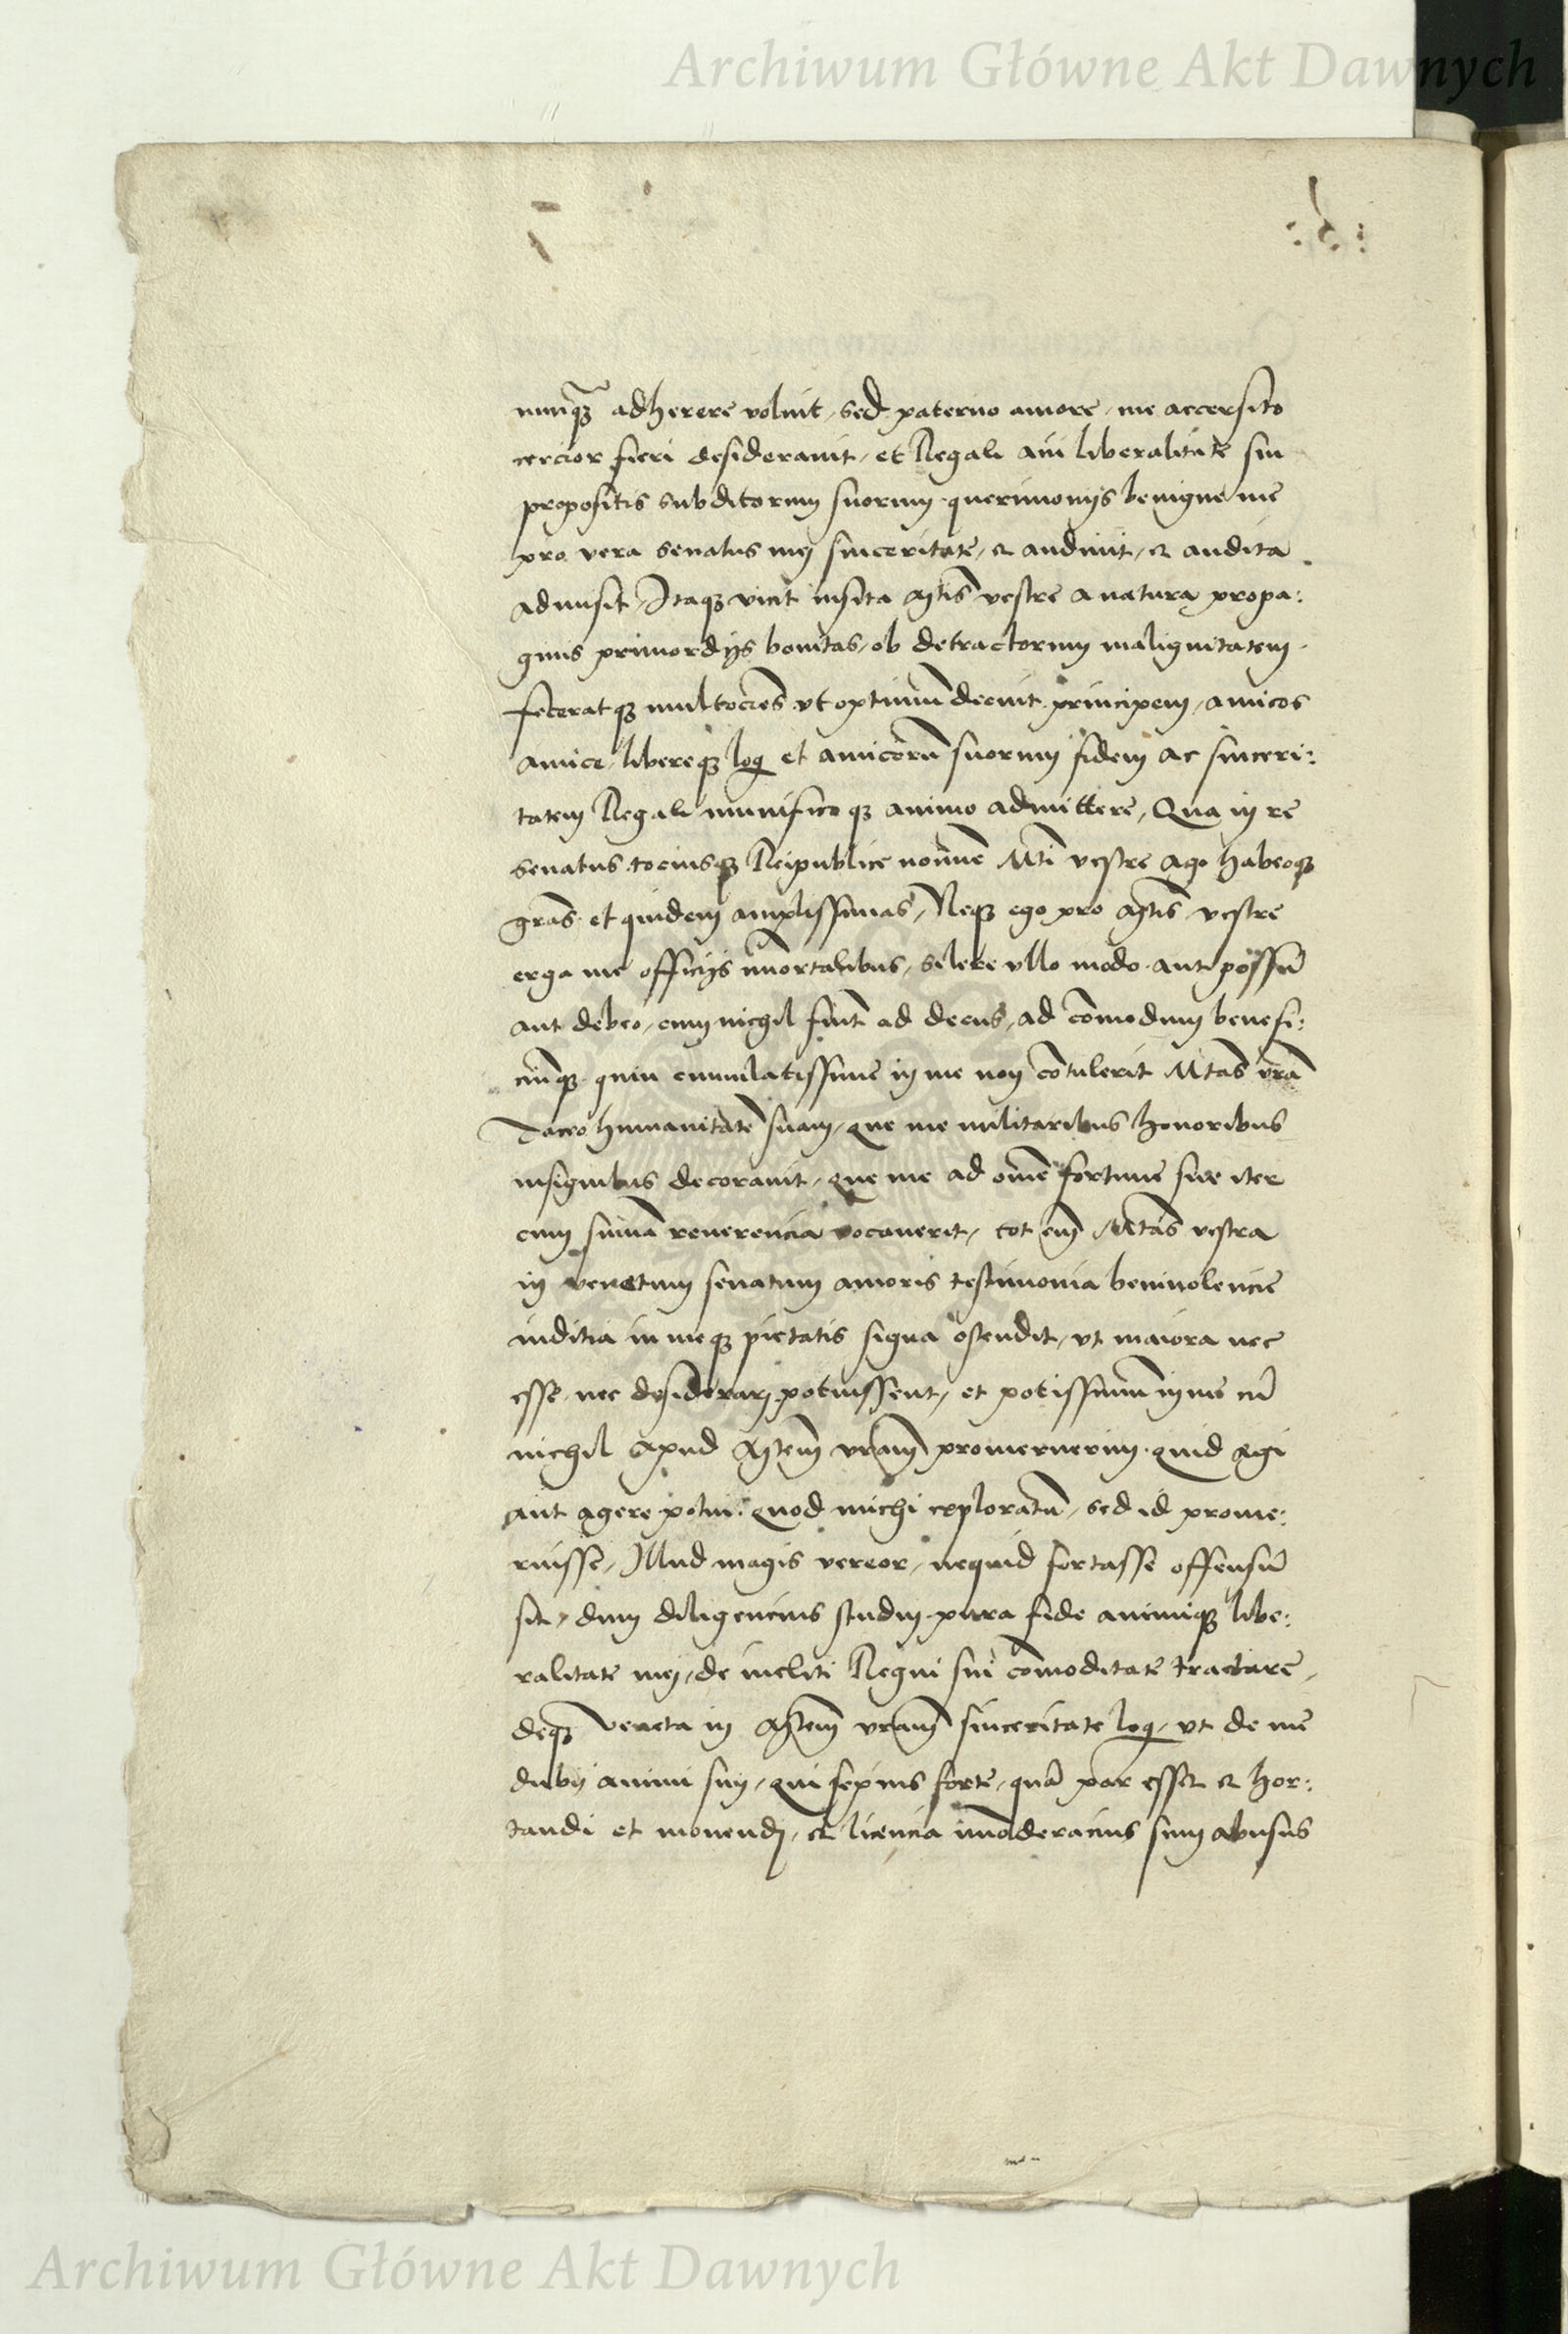 Archiwum Główne Akt Dawnych
nunqꝫ adherere voluit, sed paterno amore, me accersito
cercior fieri desideravit, et Regali avi liberalitate sui
propositis subditorum suorum querimonijs benigne me
pro vera senatus mei sinceritate, & audivit, & audita
admisit, Itaqꝫ vicit insita Mtis vestre a natura propa:
ginis primordijs bonitas, ob detractorum malignitatem
feceratqꝫ multocies vt optimū decuit principem, amicos
amice, libereqꝫ loqi et amicorū suorum fidem ac sinceri:
tatem Regali munificoqꝫ animo admittere, Qua in re
senatus tociusqꝫ Reipublice noīne Mti vestre ago habeoqꝫ
grās et quidem amplissimas, Neqꝫ ego pro Mtis vestre
erga me officijs īmortalibus, silere vllo modo aut possū
aut debeo, cum nichil fuit ad decus, ad cōmodum benefi:
ciūqꝫ quin cumulatissime in me non cōtulerit Mtas vrā
Taceo humanitatē suam, que me militaribus honoribus
insignibus decoravit, que me ad omē fortune sue iter
cum sūma reverencia vocaverit, tot em̄ Mtas vestra
in venetum senatum amoris testimonia benivolencie
inditia in meqꝫ pietatis signa ostendit, vt maiora nec
esse nec desiderari potuissent, et potissimū in me cū
nichil apud Mtem vrām promeruerim quid agi
aut agere potui: quod michi exploratū, sed id prome:
ruisse, Illud magis vereor, nequid fortasse offensū
sit, dum diligencius studui pura fide animiqꝫ libe:
ralitate mei, de incliti Regni sui cōmoditate tractare,
deqꝫ veneta in Mtem vrām sinceritate loqi, vt de me
dubij animi sim, qui sepius forte, quā par esset & hor:
tandi et monendi, & licencia īmoderacius sum abusus
Archiwum Główne Akt Dawnych